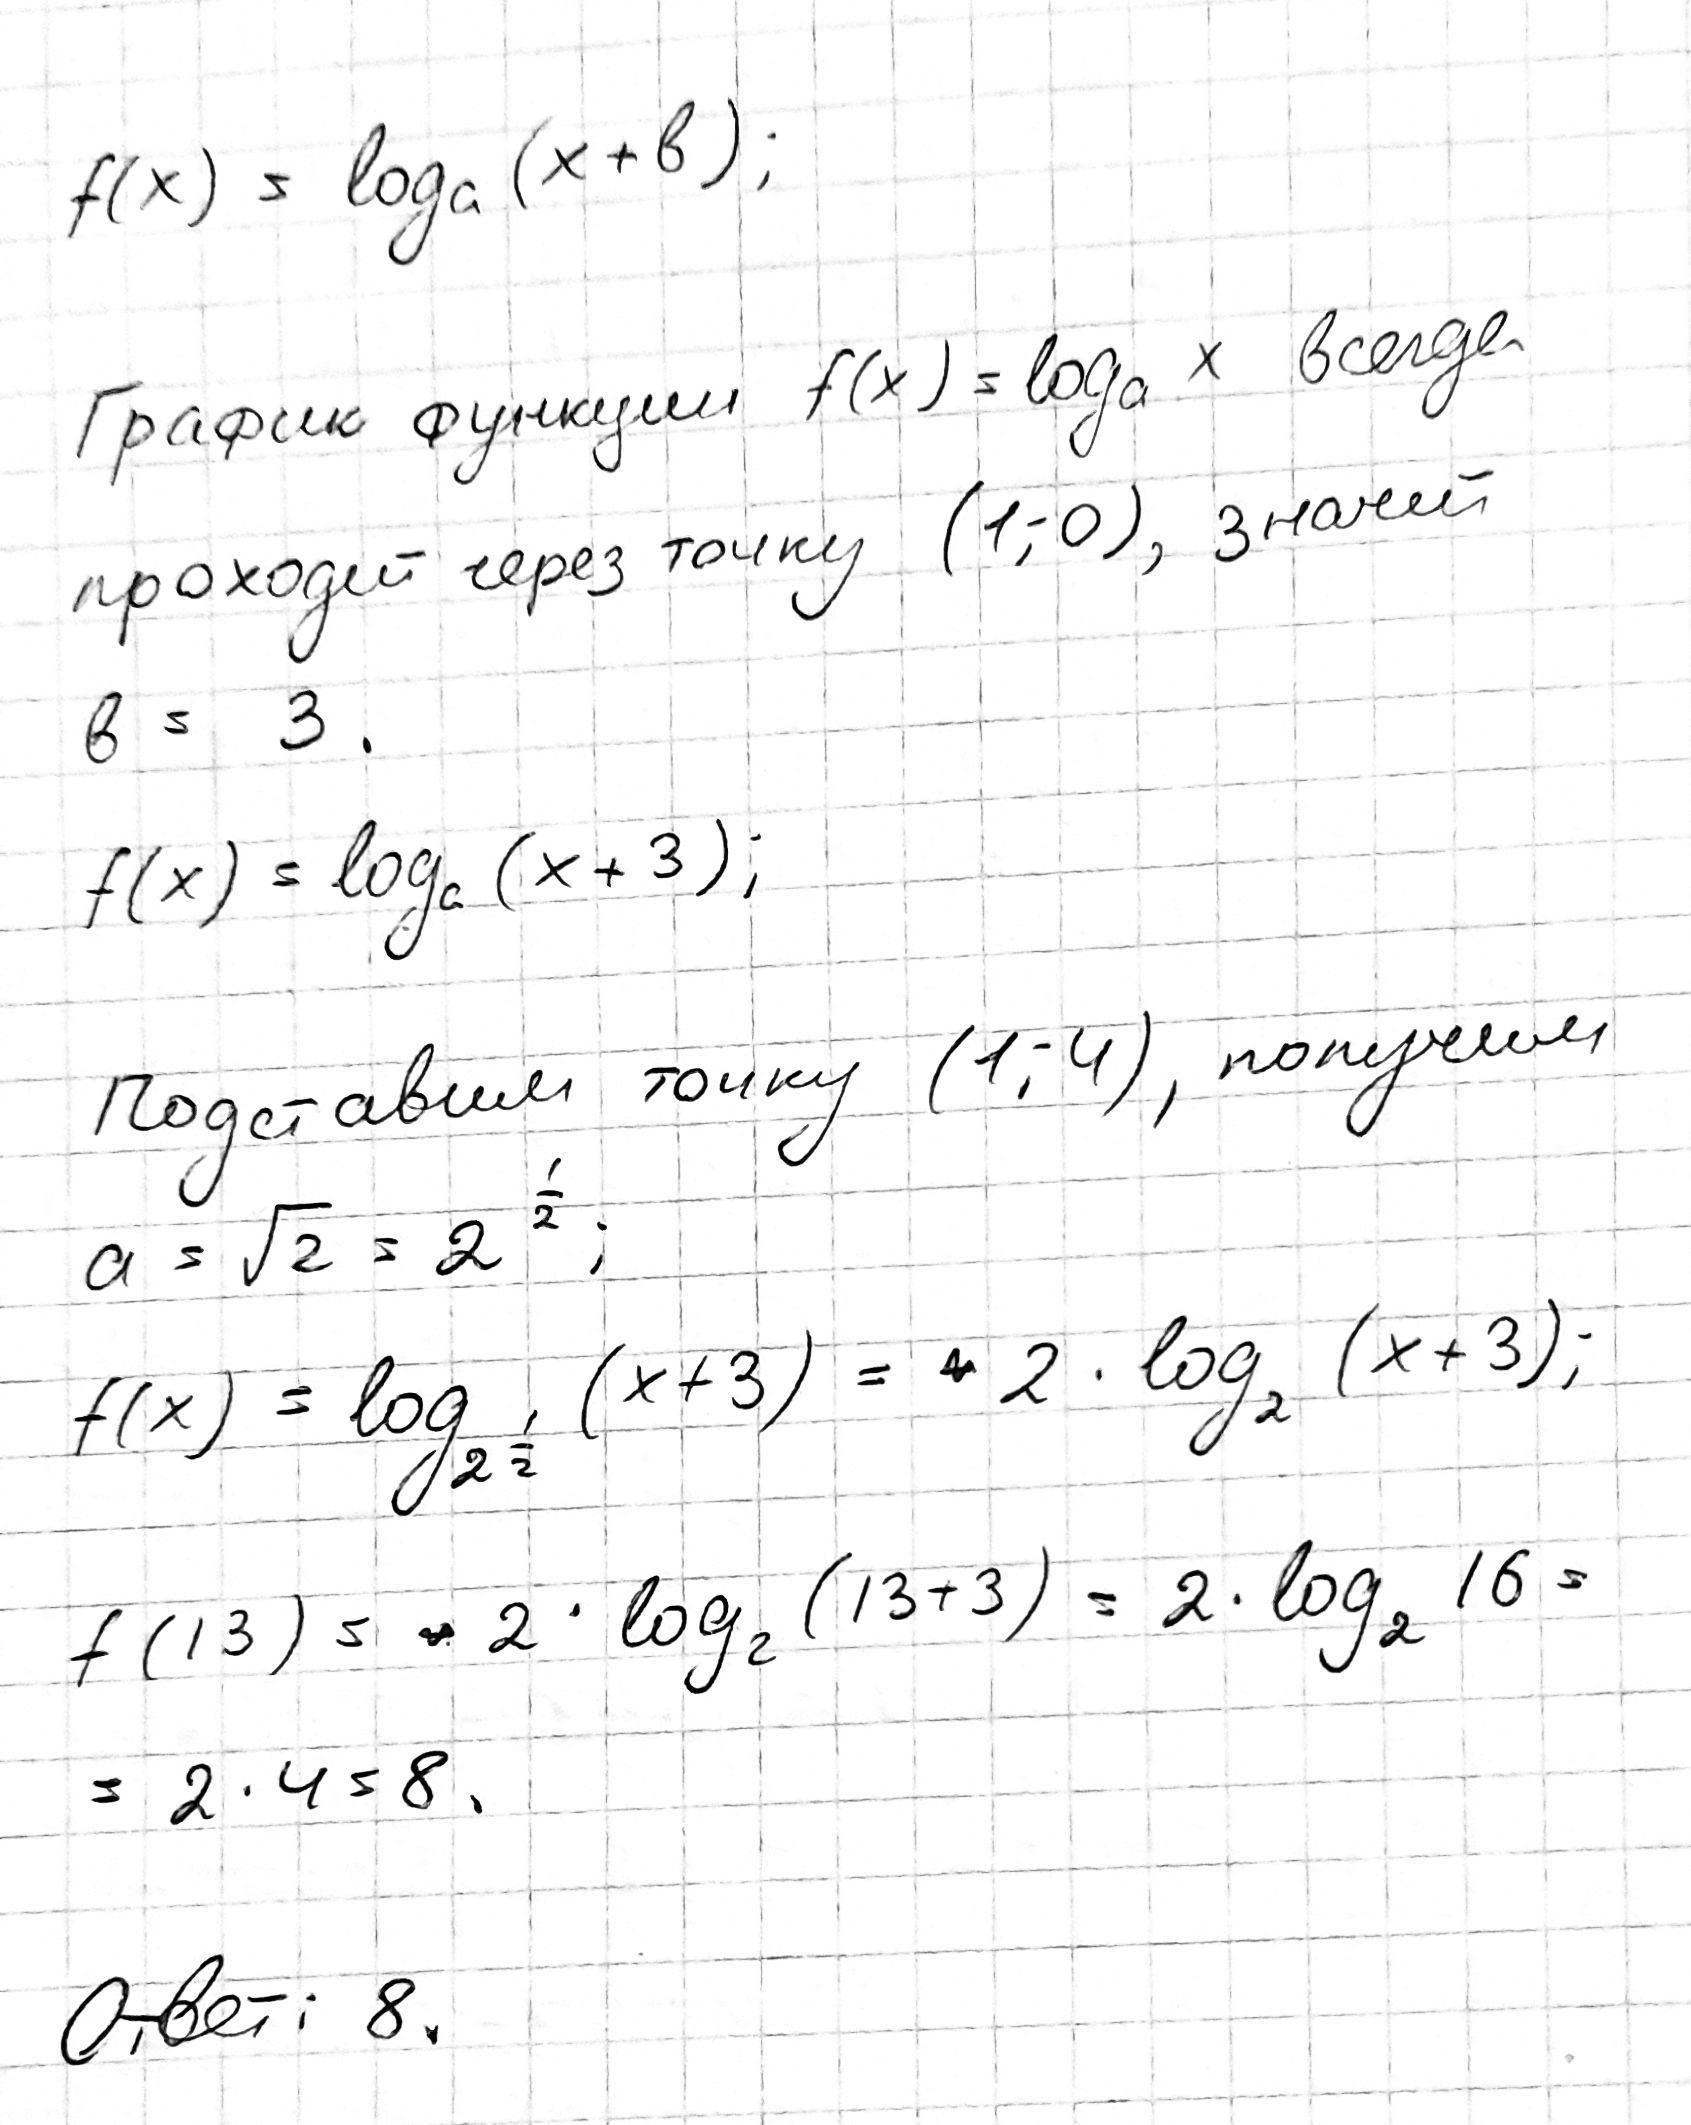 f(x) = logₐ (x + в);
График функции f(x) = logₐ x всегда
проходит через точку (1; 0), значит
в = 3.
f(x) = logₐ (x + 3);
Подставим точку (1; 4), получим
a = √2 = 2^(1/2);
f(x) = log_(2^(1/2)) (x + 3) = 2 · log₂ (x + 3);
f(13) = 2 · log₂ (13 + 3) = 2 · log₂ 16 =
= 2 · 4 = 8.
Ответ: 8.